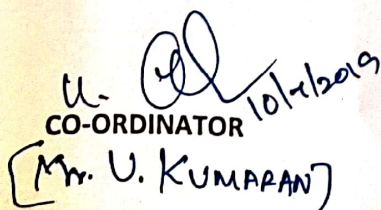 U.
10/4/2019
CO-ORDINATOR
[Mr. U. KUMARAN]